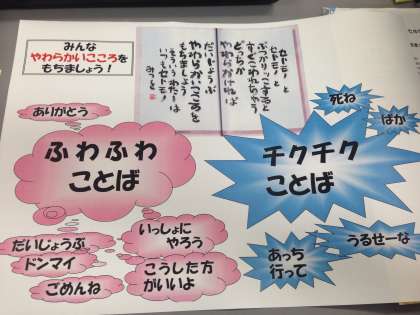 みんな
やわらかいこころを
もちましょう！
セトモノと
セトモノと
ぶつかりッこすると
すぐこわれちゃう
どっちか
やわらかければ
だいじょうぶ
やわらかいこころを
もちましょう
そういうわたしは
いつもセトモノ
みつを
ありがとう
ふわふわ
ことば
だいじょうぶ
ドンマイ
ごめんね
いっしょに
やろう
こうした方
がいいよ
死ね
ばか
チクチク
ことば
あっち
行って
うるせーな